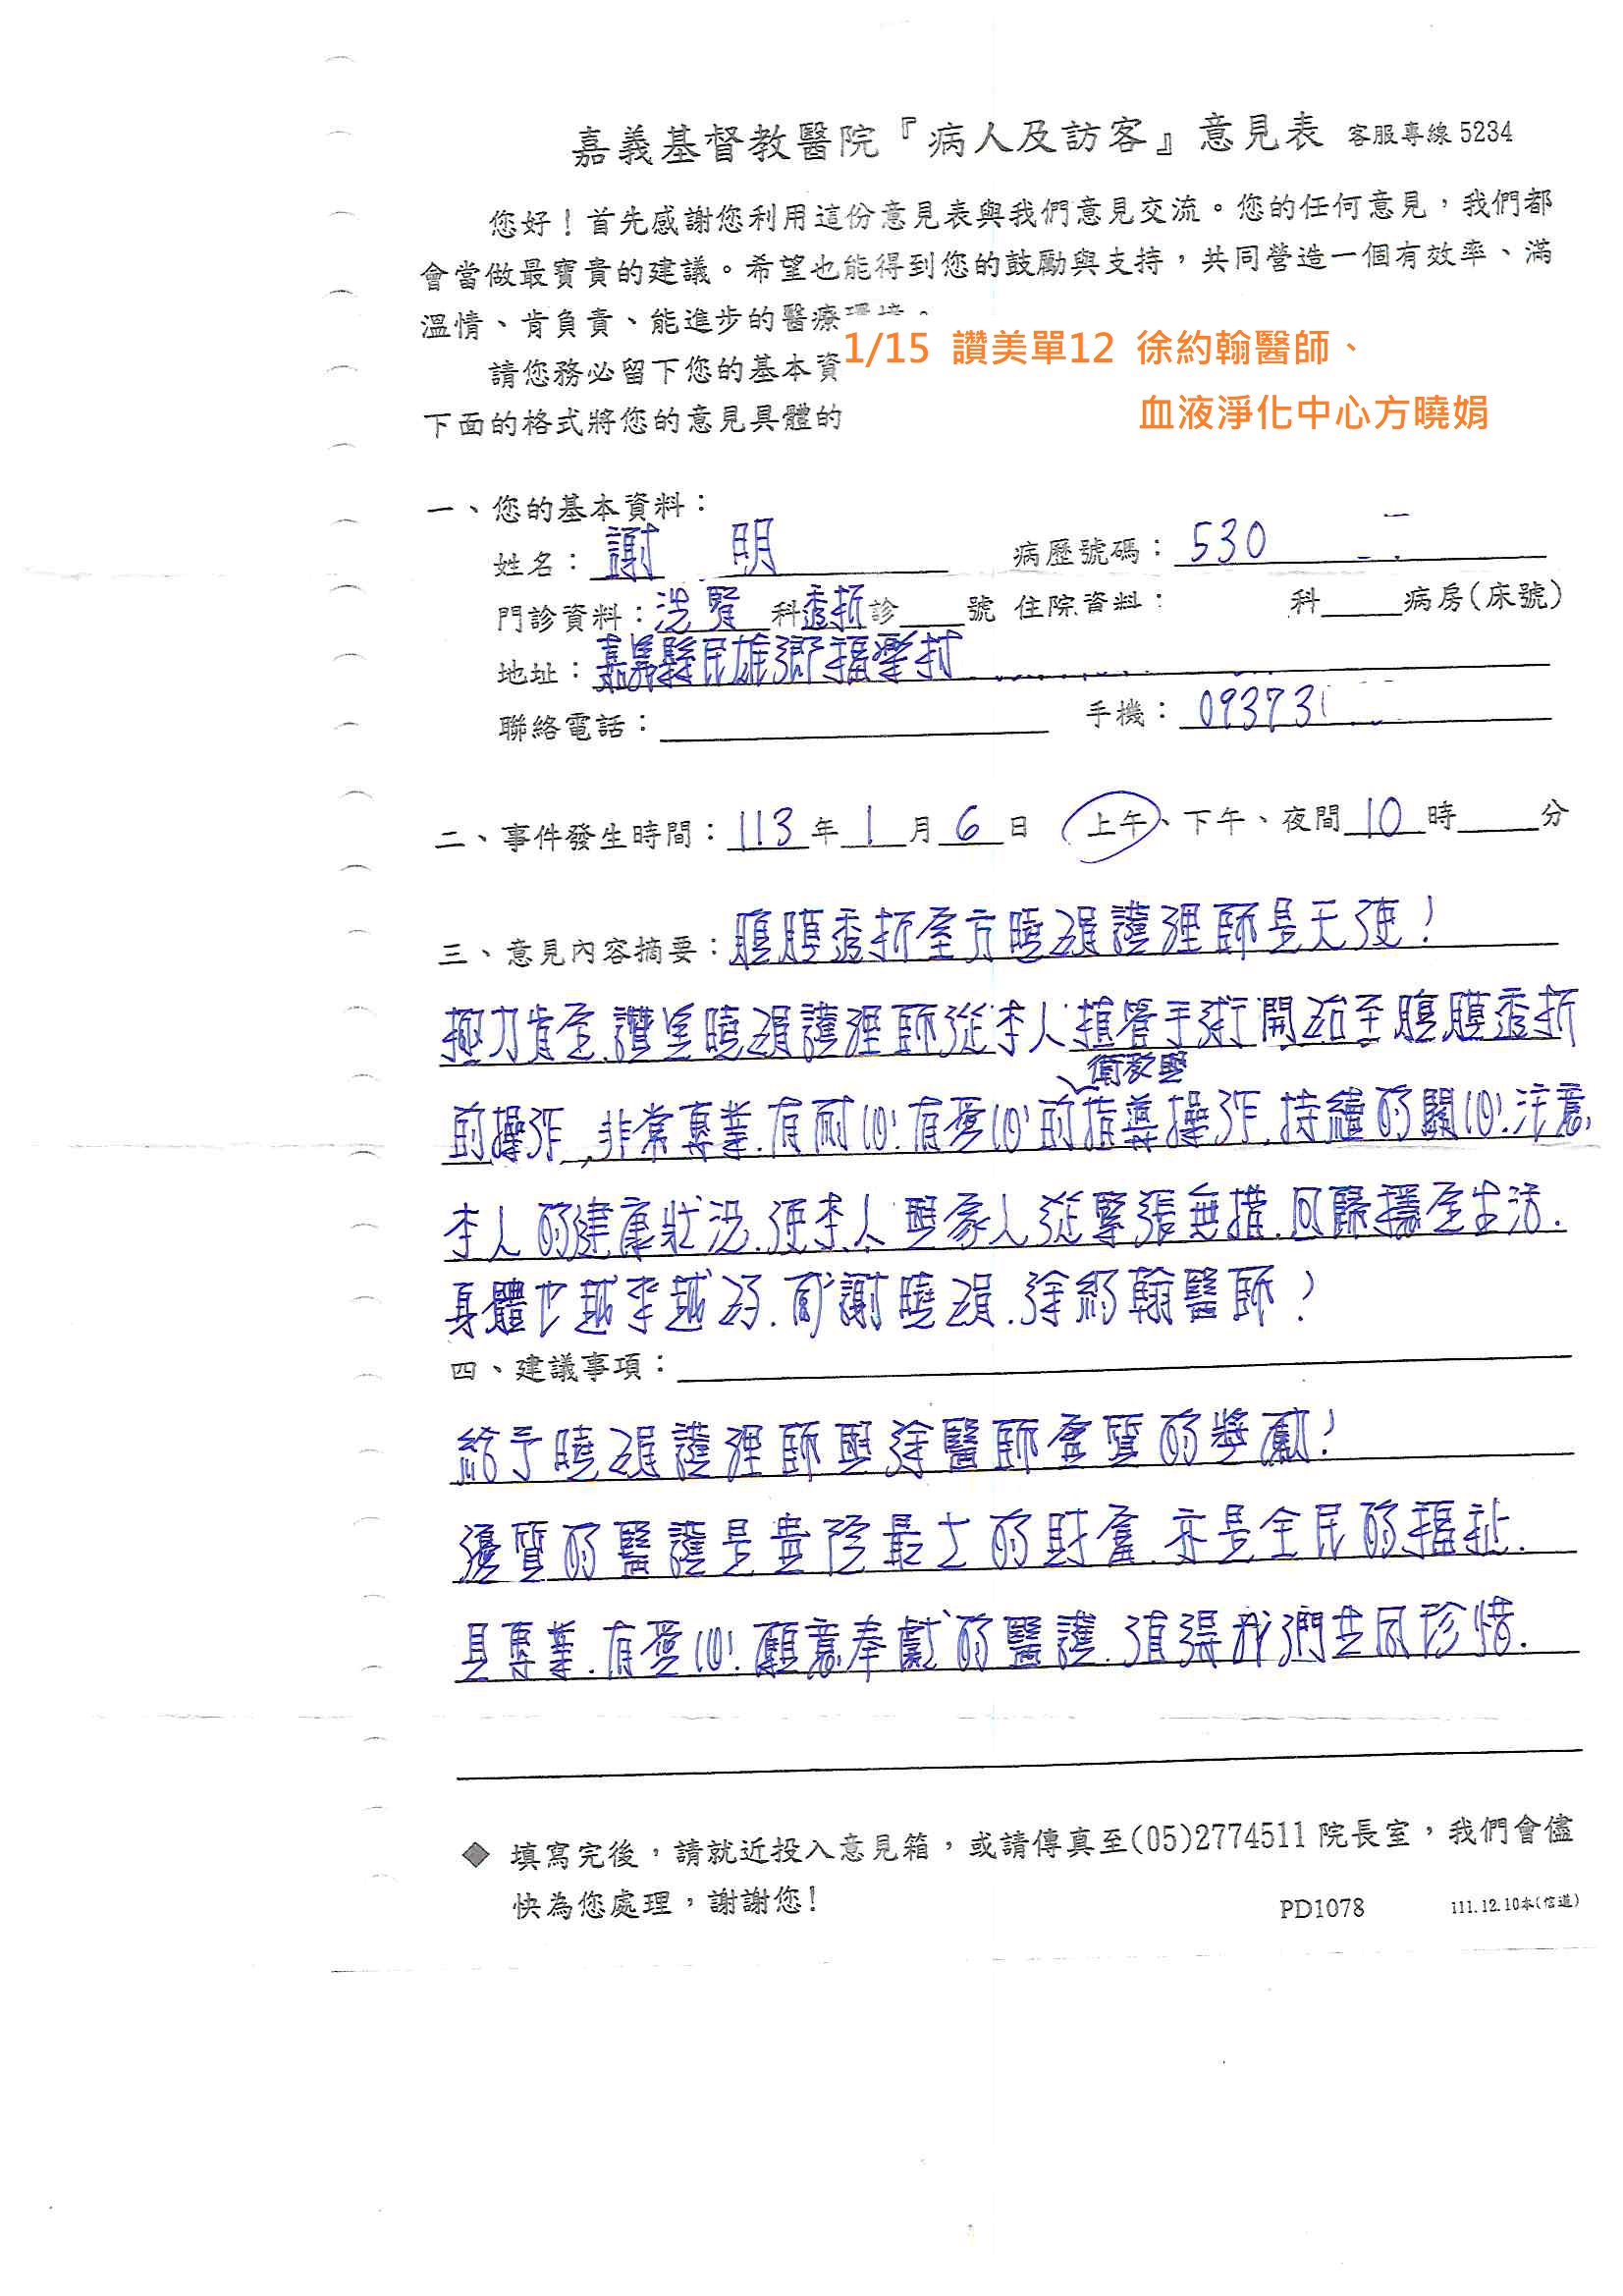 嘉義基督教醫院『病人及訪客』意見表 客服專線 5234
您好！首先感謝您利用這份意見表與我們意見交流。您的任何意見，我們都
會當做最寶貴的建議。希望也能得到您的鼓勵與支持，共同營造一個有效率、滿
溫情、肯負責、能進步的醫療環境。
1/15 讚美單12 徐約翰醫師、
請您務必留下您的基本資
血液淨化中心方曉娟
下面的格式將您的意見具體的
一、您的基本資料：
姓名：謝 明 病歷號碼：530
門診資料：洗腎科透折診 號 住院資料： 科 病房(床號)
地址：嘉義縣民雄鄉福樂村
聯絡電話： 手機：093731
二、事件發生時間：113年1月6日 上午、下午、夜間10時 分
三、意見內容摘要：腹膜透折室方曉娟護理師是天使！
極力肯定.讚美曉娟護理師從本人植管手術開始至腹膜透折
衛教與
前操作,非常專業.有耐心!有愛心前指導操作.持續的關心!注意
本人的健康狀況.使本人與家人從緊張無措.回歸穩定生活.
身體也越來越好.感謝曉娟.徐約翰醫師！
四、建議事項：
給予曉娟護理師與徐醫師實質的獎勵!
優質的醫護是貴院最大的財富.亦是全民的福祉.
具專業.有愛心!願意奉獻的醫護.值得我們共同珍惜.
◆ 填寫完後，請就近投入意見箱，或請傳真至(05)2774511 院長室，我們會儘
快為您處理，謝謝您!
PD1078 111.12.10本(信道)